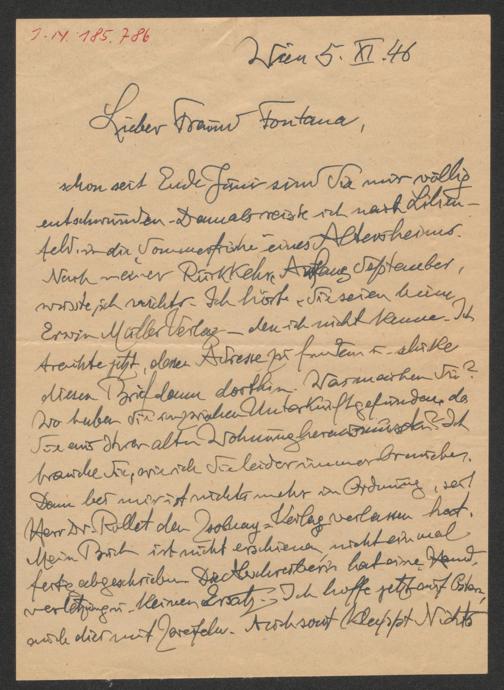 J. N. 185.786
Wien 5. XI. 46
Lieber Freund Fontana,
schon seit Ende Juni sind Sie mir völlig
entschwunden. Damals reiste ich nach Lilien-
feld in die Sommerfrische eines Altersheims.
Nach meiner Rückkehr, Anfang September,
wusste ich nichts. Ich hörte, Sie seien beim
Erwin Müller Verlag – den ich nicht kenne. Ich
trachte jetzt, deren Adresse zu finden u. schicke
diesen Brief dann dorthin. Was machen Sie?
Wo haben Sie inzwischen Unterkunft gefunden, da
Sie aus Ihrer alten Wohnung heraus mussten? Ich
brauche Sie, wie ich Sie leider immer brauche.
Denn bei mir ist nichts mehr in Ordnung, seit
Herr Dr. Rollet den Zsolnay-Verlag verlassen hat.
Mein Buch ist nicht erschienen, nicht einmal
fertig abgeschrieben. Die Abschreiberin hat eine Hand-
verletzung u. keinen Ersatz. Ich hoffe jetzt auf
auch dies mit Zweifeln. Auch sonst klappt Nichts